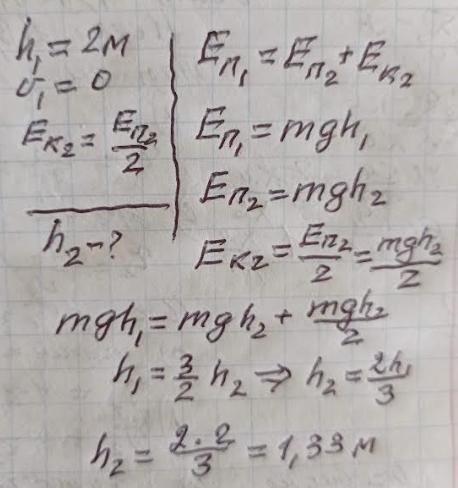 h₁ = 2м
υ₁ = 0
Eк₂ = Eп₂/2
h₂ - ?
Eп₁ = Eп₂ + Eк₂
Eп₁ = mgh₁
Eп₂ = mgh₂
Eк₂ = Eп₂/2 = mgh₂/2
mgh₁ = mgh₂ + mgh₂/2
h₁ = 3/2 h₂ ⇒ h₂ = 2h₁/3
h₂ = 2·2/3 = 1,33 м